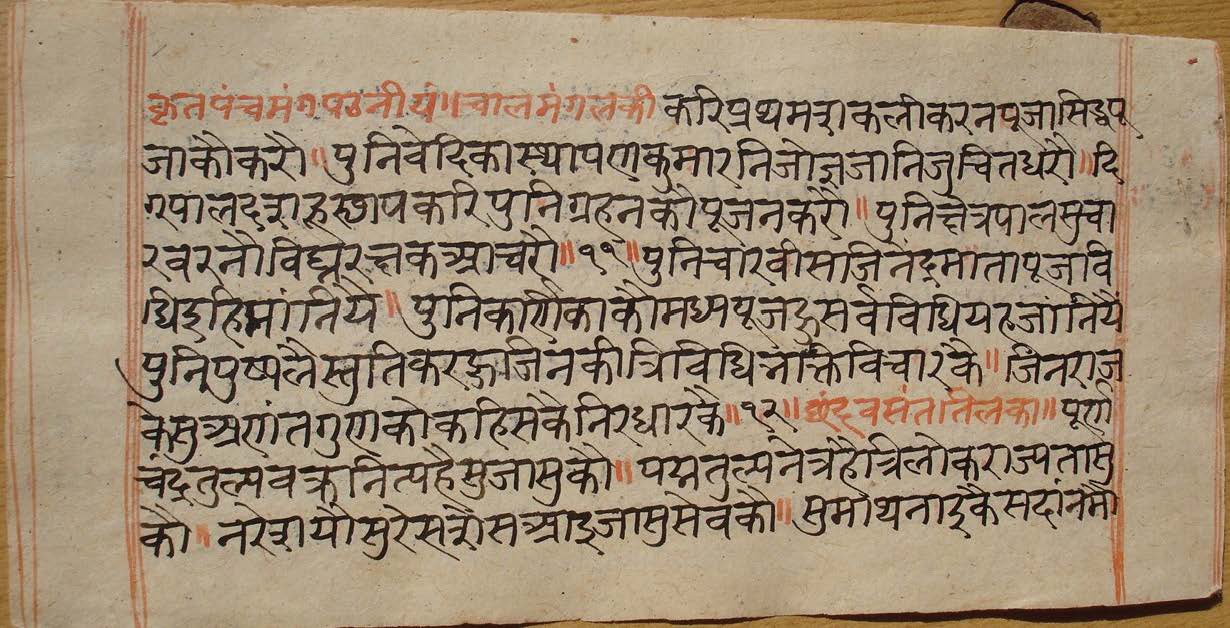 कृतपंचमंगपठनीयं॥चालमंगलकी करिप्रथमशकलीकरनपूजासिद्धपू
जाकौकरौ॥ पुनिवेदिकास्थापणकुमारनिजौजुजानिजुचितधरौ॥दि
गपालदश करिपुनिग्रहनकौपूजनकरौ॥ पुनिक्षेत्रपालसुचा
रवरनौविघ्नरक्षकआचरौ॥११॥पुनिचारवीसजिनंदमातापूजवि
धिइहिमांनियै॥ पुनिकर्णिकाकौमध्यपूजहुसर्वविधियहजानियै
पुनिपुष्पलैस्तुतिकरहुजिनकीत्रिविधिभक्तिविचारकै॥जिनराज
केसुअणंतगुणकोकहिसकैनिरधारकै॥१२॥छंदवसंततिलका॥पूर्ण
चंद्रतुल्यवक्रनित्यहैसुजासुकौ॥ पद्मतुल्यनेत्रहैत्रिलोकराज्यतासु
कौ॥ नरेशयौसुरेस आइजासुसेवकौ॥ सुमाथनाइकैसदांनमौ